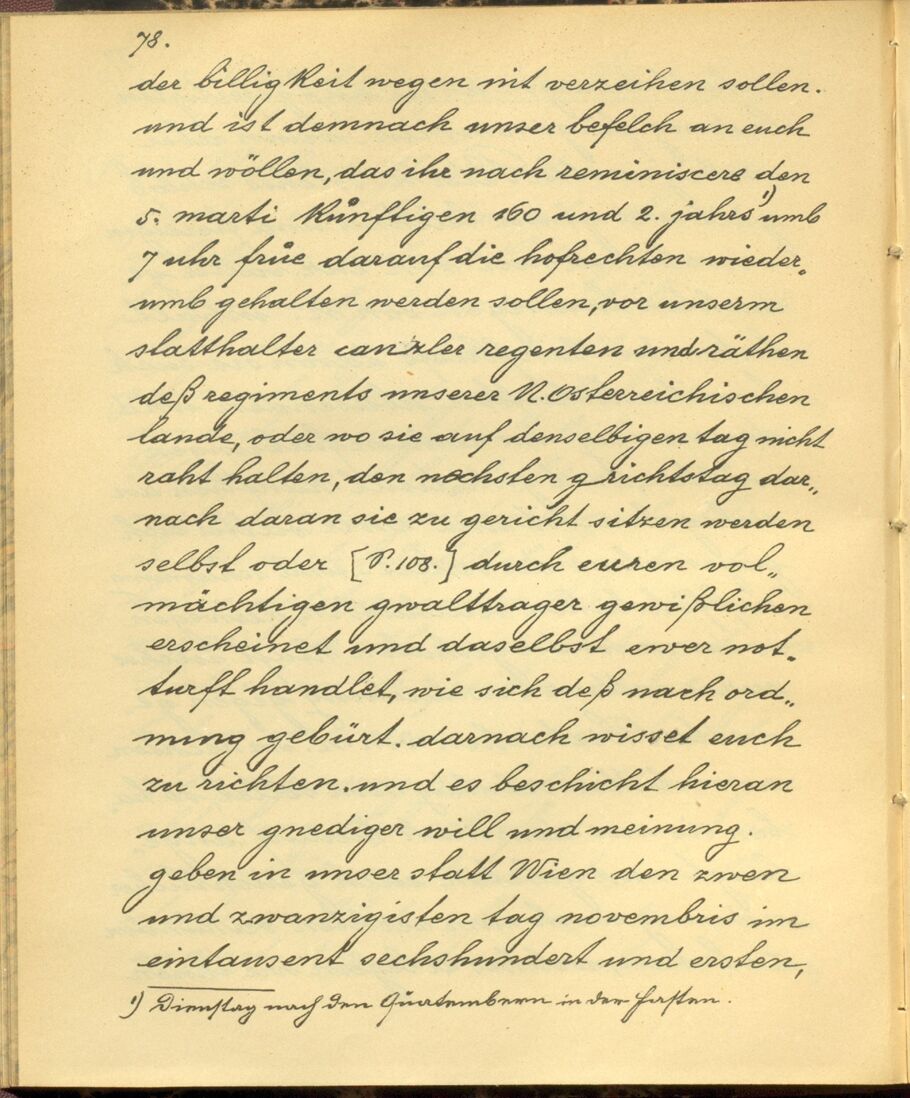 78.
der billigkeit wegen nit verzeihen sollen.
und ist demnach unser befelch an euch
und wöllen, das ihr nach reminiscere den
5. marti künftigen 160 und 2. jahrs ¹) umb
7 uhr früe darauf die hofrechten wieder„
umb gehalten werden sollen, vor unserm
statthalter canzler regenten und räthen
deß regiments unserer N. Österreichischen
lande, oder wo sie auf denselbigen tag nicht
raht halten, den nechsten grichtstag dar„
nach daran sie zu gericht sitzen werden
selbst oder [P. 108.] durch euren vol„
mächtigen gwalttrager gewißlichen
erscheinet und daselbst ewer not„
turft handlet, wie sich deß nach ord„
nung gebürt. darnach wisset euch
zu richten. und es beschicht hieran
unser gnediger will und meinung.
geben in unser statt Wien den zwen
und zwanzigisten tag novembris im
eintausent sechshundert und ersten,
¹) Dienstag nach den Quatembern in der Fasten.